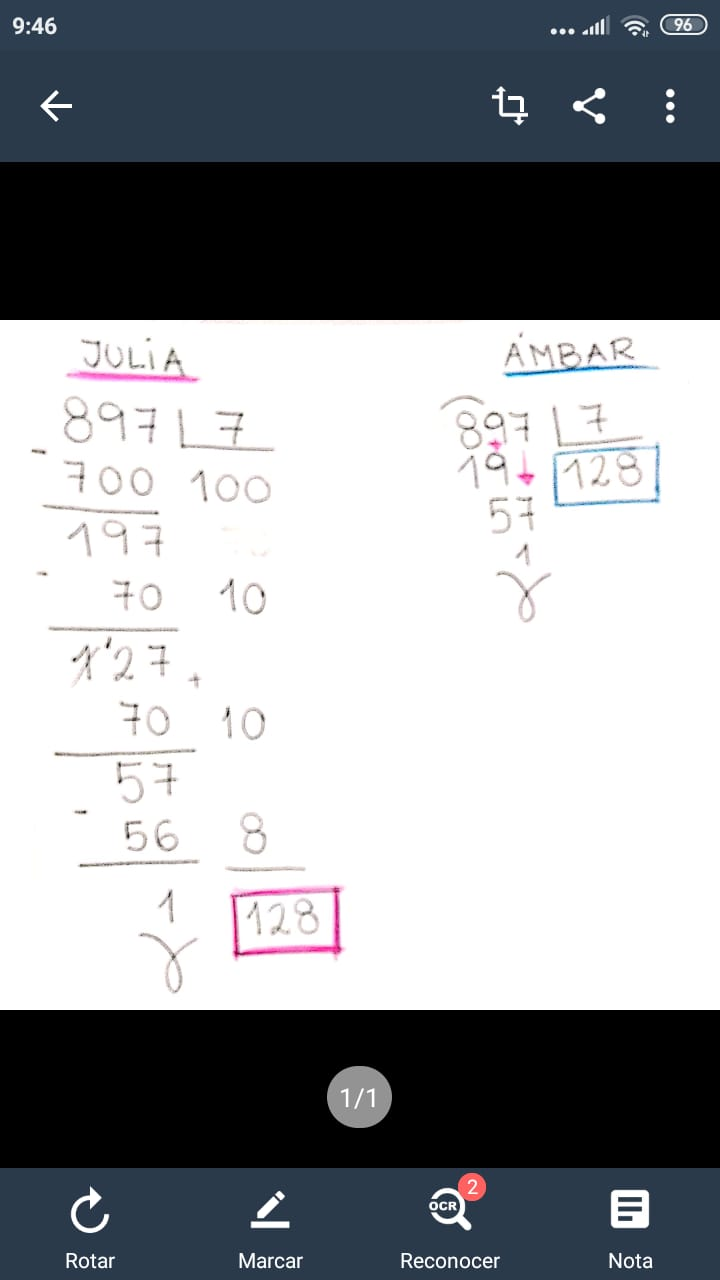 9:46
96
JULIA
897 7
- 700 100
197
- 70 10
1'27 +
70 10
57
- 56 8
1 128
r
ÁMBAR
897 7
19 128
57
1
r
1/1
Rotar
Marcar
OCR 2
Reconocer
Nota